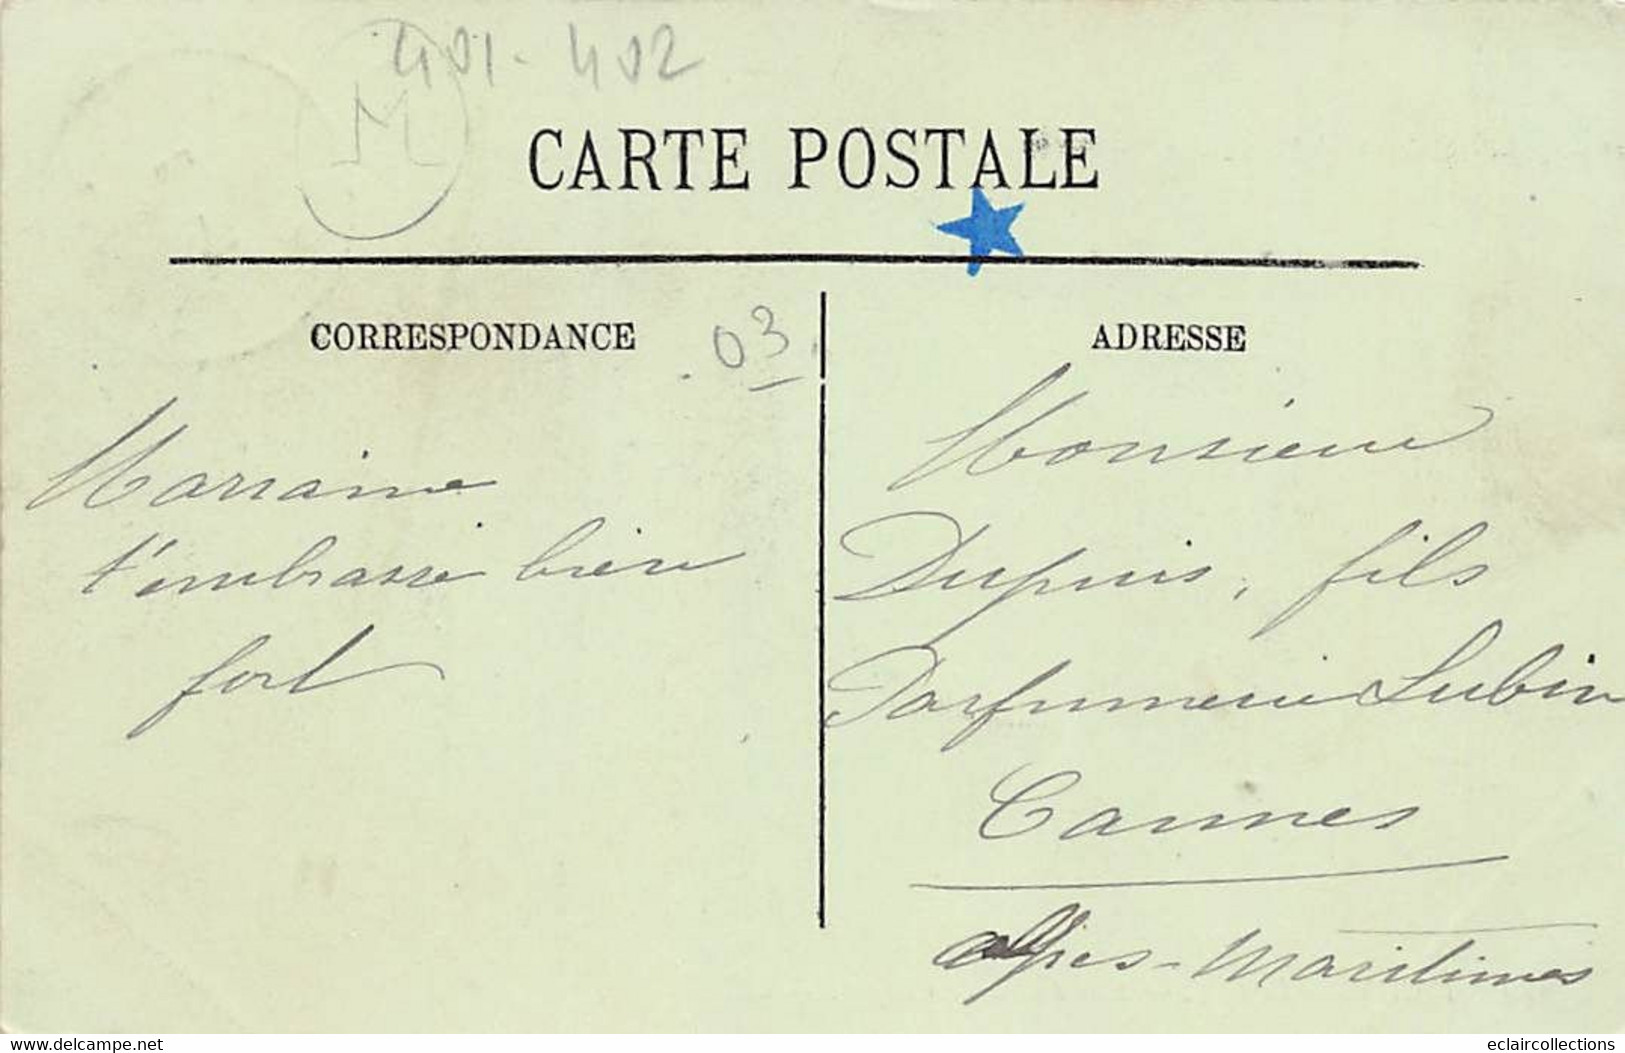 401-402
M
CARTE POSTALE
CORRESPONDANCE
03
ADRESSE
Marraine
t'embrasse bien
fort
Monsieur
Dupuis, fils
Parfumerie Lubin
Cannes
Alpes-Maritimes
www.delcampe.net
eclaircollections